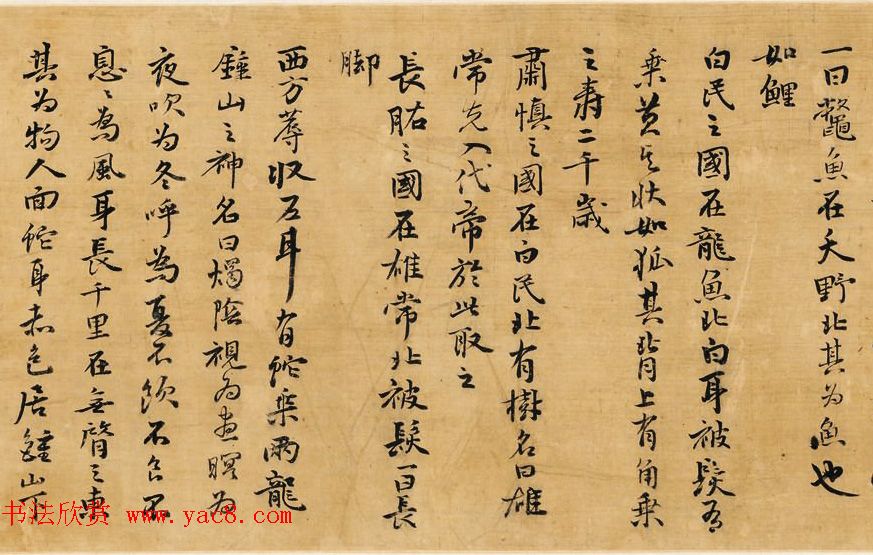 一曰鼈魚在夭野北其为魚也
如鯉
白民之國在龍魚北白耳被髮有
乗黄其状如狐其背上有角乗
之壽二千歳
肅慎之國在白民北有樹名曰雄
常先入代帝於此取之
長股之國在雄常北被髮一曰長
脚
西方蓐収左耳有蛇乗兩龍
鍾山之神名曰燭陰視為晝瞑为
夜吹为冬呼為夏不飲不食不
息息為風耳長千里在無䏿之東
其为物人面蛇耳赤色居鍾山下
书法欣赏 www.yac8.com